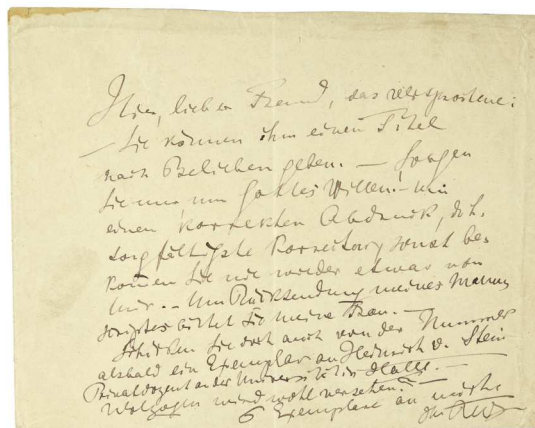 Hier, lieber Freund, das versprochene:
— Sie können ihm einen Titel
nach Belieben geben. — Sorgen
Sie nur um Gottes Willen! — um
einen korrekten Abdruck, d.h.
sorgfältigste Korrektur, sonst be-
komen Sie nie wieder etwas von
mir. — Um Rücksendung meines Manu-
scriptes bittet Sie meine Frau. —
Schicken Sie doch auch von der Nummer
alsbald ein Exemplar an Heinrich v. Stein
Privatdozent an der Universität in Halle. —
Wolzogen wird wohl versehen? —
6 Exemplare an mich